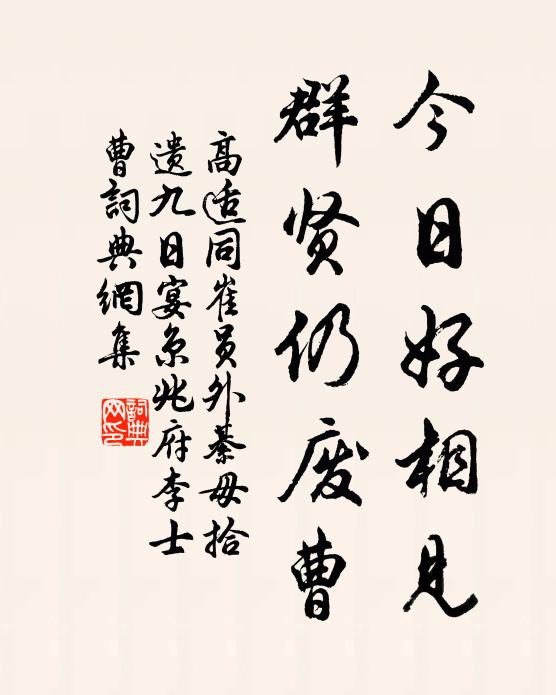 今日好相見
群贤仍废曹
高适同崔員外綦毋拾
遗九日宴京兆府李士
曹詞典網集
詞典
网印